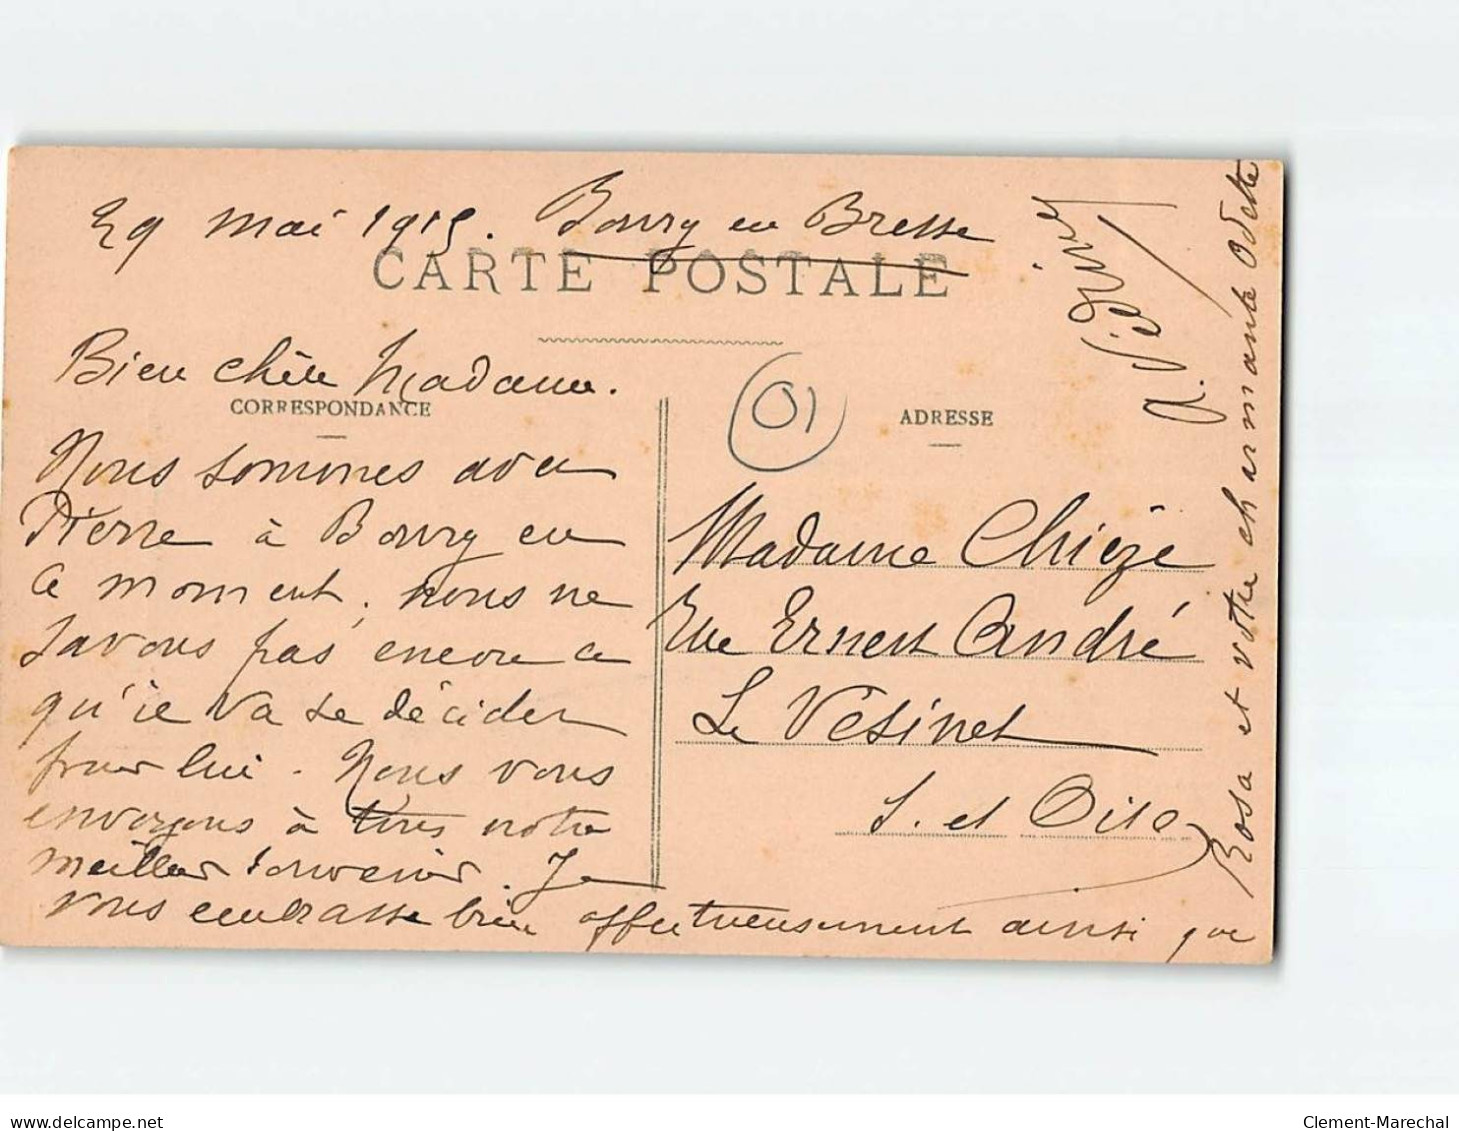 29 mai 1915. Bourg en Bresse
CARTE POSTALE
Bien chère Madame.
CORRESPONDANCE
Nous sommes avec
Pierre à Bourg en
ce moment, nous ne
savons pas encore ce
qu'ie va se décider
pour lui. Nous vous
envoyons à tous notre
meilleur souvenir. Je
vous embrasse bien affectueusement ainsi que
Rosa et votre charmante Odette
01
ADRESSE
Madame Chièze
Rue Ernest André
Le Vésinet
S. et Oise
delcampe.net
Clement-Marechal